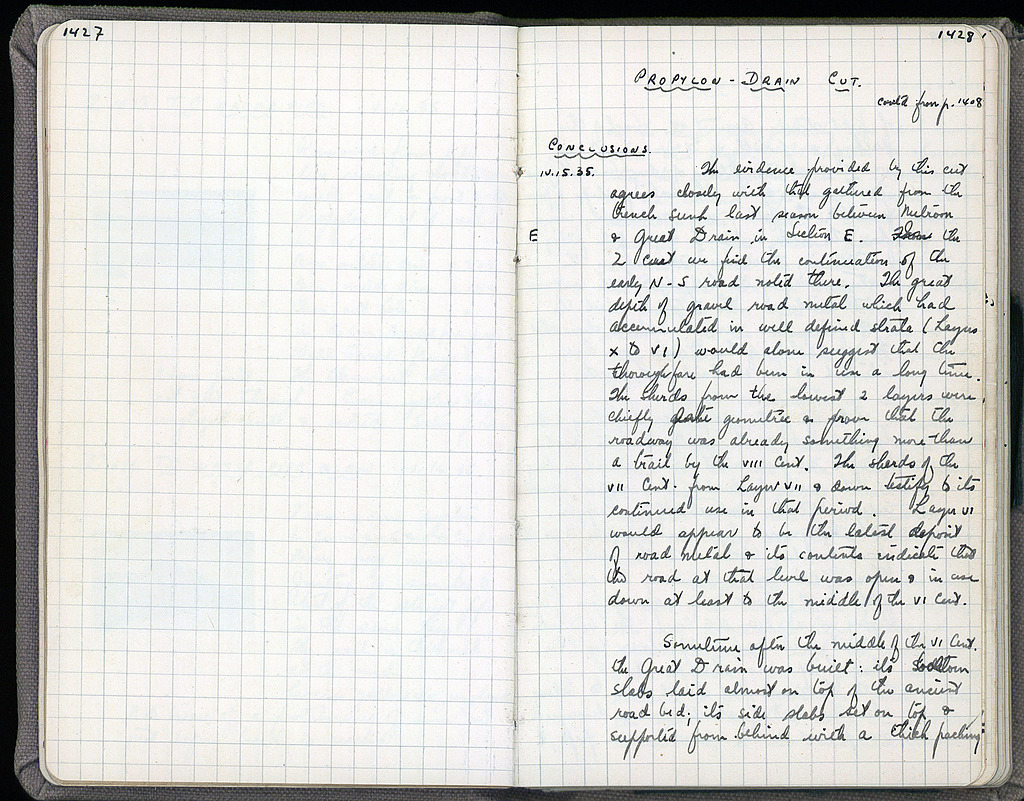 1427
1428
PROPYLON - DRAIN CUT.
cont'd from p. 1408
CONCLUSIONS.
IV.15.35.
The evidence provided by this cut
agrees closely with that gathered from the
trench sunk last season between Metroon
E
& Great Drain in Section E. the
2 cuts we find the continuation of the
early N-S road noted there. The great
depth of gravel road metal which had
accumulated in well defined strata (Layers
X to VI) would alone suggest that the
thoroughfare had been in use a long time.
The sherds from the lowest 2 layers were
chiefly late geometric & prove that the
roadway was already something more than
a trail by the VIII Cent. The sherds of the
VII Cent. from Layer VII & down testify to its
continued use in that period. Layer VI
would appear to be the latest deposit
of road metal & its contents indicate that
the road at that level was open & in use
down at least to the middle of the VI Cent.
Sometime after the middle of the VI Cent.
the Great Drain was built: its bottom
slabs laid almost on top of the ancient
road bed; its side slabs set on top &
supported from behind with a thick packing